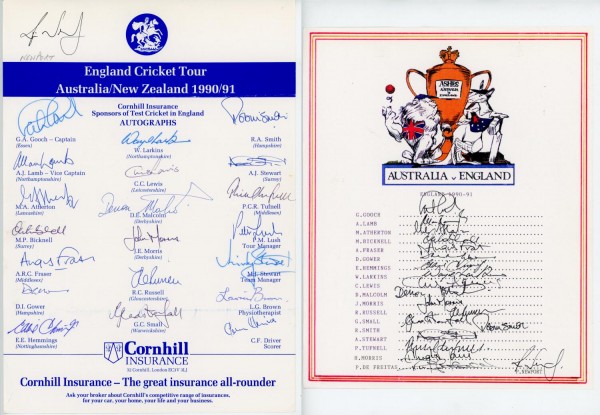 NEWPORT
England Cricket Tour
Australia/New Zealand 1990/91
Cornhill Insurance
Sponsors of Test Cricket in England
AUTOGRAPHS
G.A. Gooch – Captain
(Essex)
A.J. Lamb – Vice Captain
(Northamptonshire)
M.A. Atherton
(Lancashire)
M.P. Bicknell
(Surrey)
Angus Fraser
A.R.C. Fraser
(Middlesex)
D.I. Gower
(Hampshire)
E.E. Hemmings
(Nottinghamshire)
Wayne Larkins
W. Larkins
(Northamptonshire)
Chris Lewis
C.C. Lewis
(Leicestershire)
Devon Malcolm
D.E. Malcolm
(Derbyshire)
John Morris
J.E. Morris
(Derbyshire)
R.C. Russell
(Gloucestershire)
Gladstone Small
G.C. Small
(Warwickshire)
Robin Smith
R.A. Smith
(Hampshire)
A.J. Stewart
(Surrey)
P.C.R. Tufnell
(Middlesex)
Peter Lush
P.M. Lush
Tour Manager
M.J. Stewart
Team Manager
Lawrie Brown
L.G. Brown
Physiotherapist
C.F. Driver
Scorer
CORNHILL
Cornhill
INSURANCE
32 Cornhill, London EC3V 3LJ
Cornhill Insurance – The great insurance all-rounder
Ask your broker about Cornhill's competitive range of insurances,
for your car, your home, your life and your business.
ASHES
AUSTRALIA
v
ENGLAND
AUSTRALIA v ENGLAND
ENGLAND 1990-91
G.GOOCH
A.LAMB
M.ATHERTON
M.BICKNELL
A.FRASER
D.GOWER
E.HEMMINGS
W.LARKINS
C.LEWIS
D.MALCOLM
J.MORRIS
R.RUSSELL
G.SMALL
R.SMITH
Robin Smith
A.STEWART
P.TUFNELL
H.MORRIS
P.DE FREITAS
P.NEWPORT